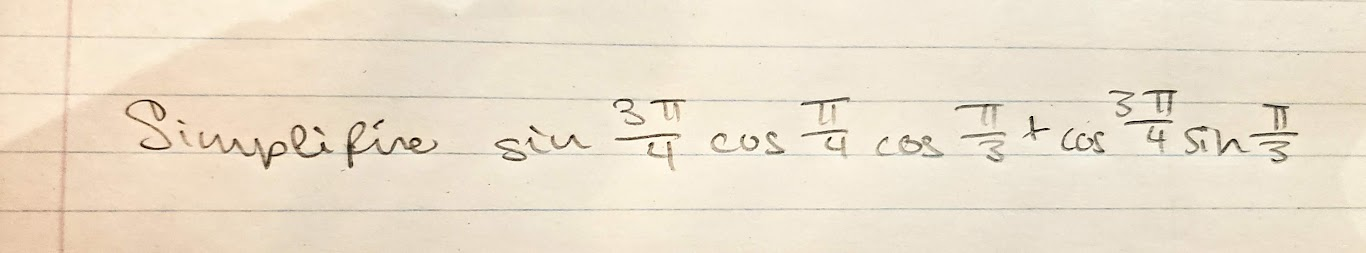 Simplifire sin 3π/4 cos π/4 cos π/3 + cos 3π/4 sin π/3